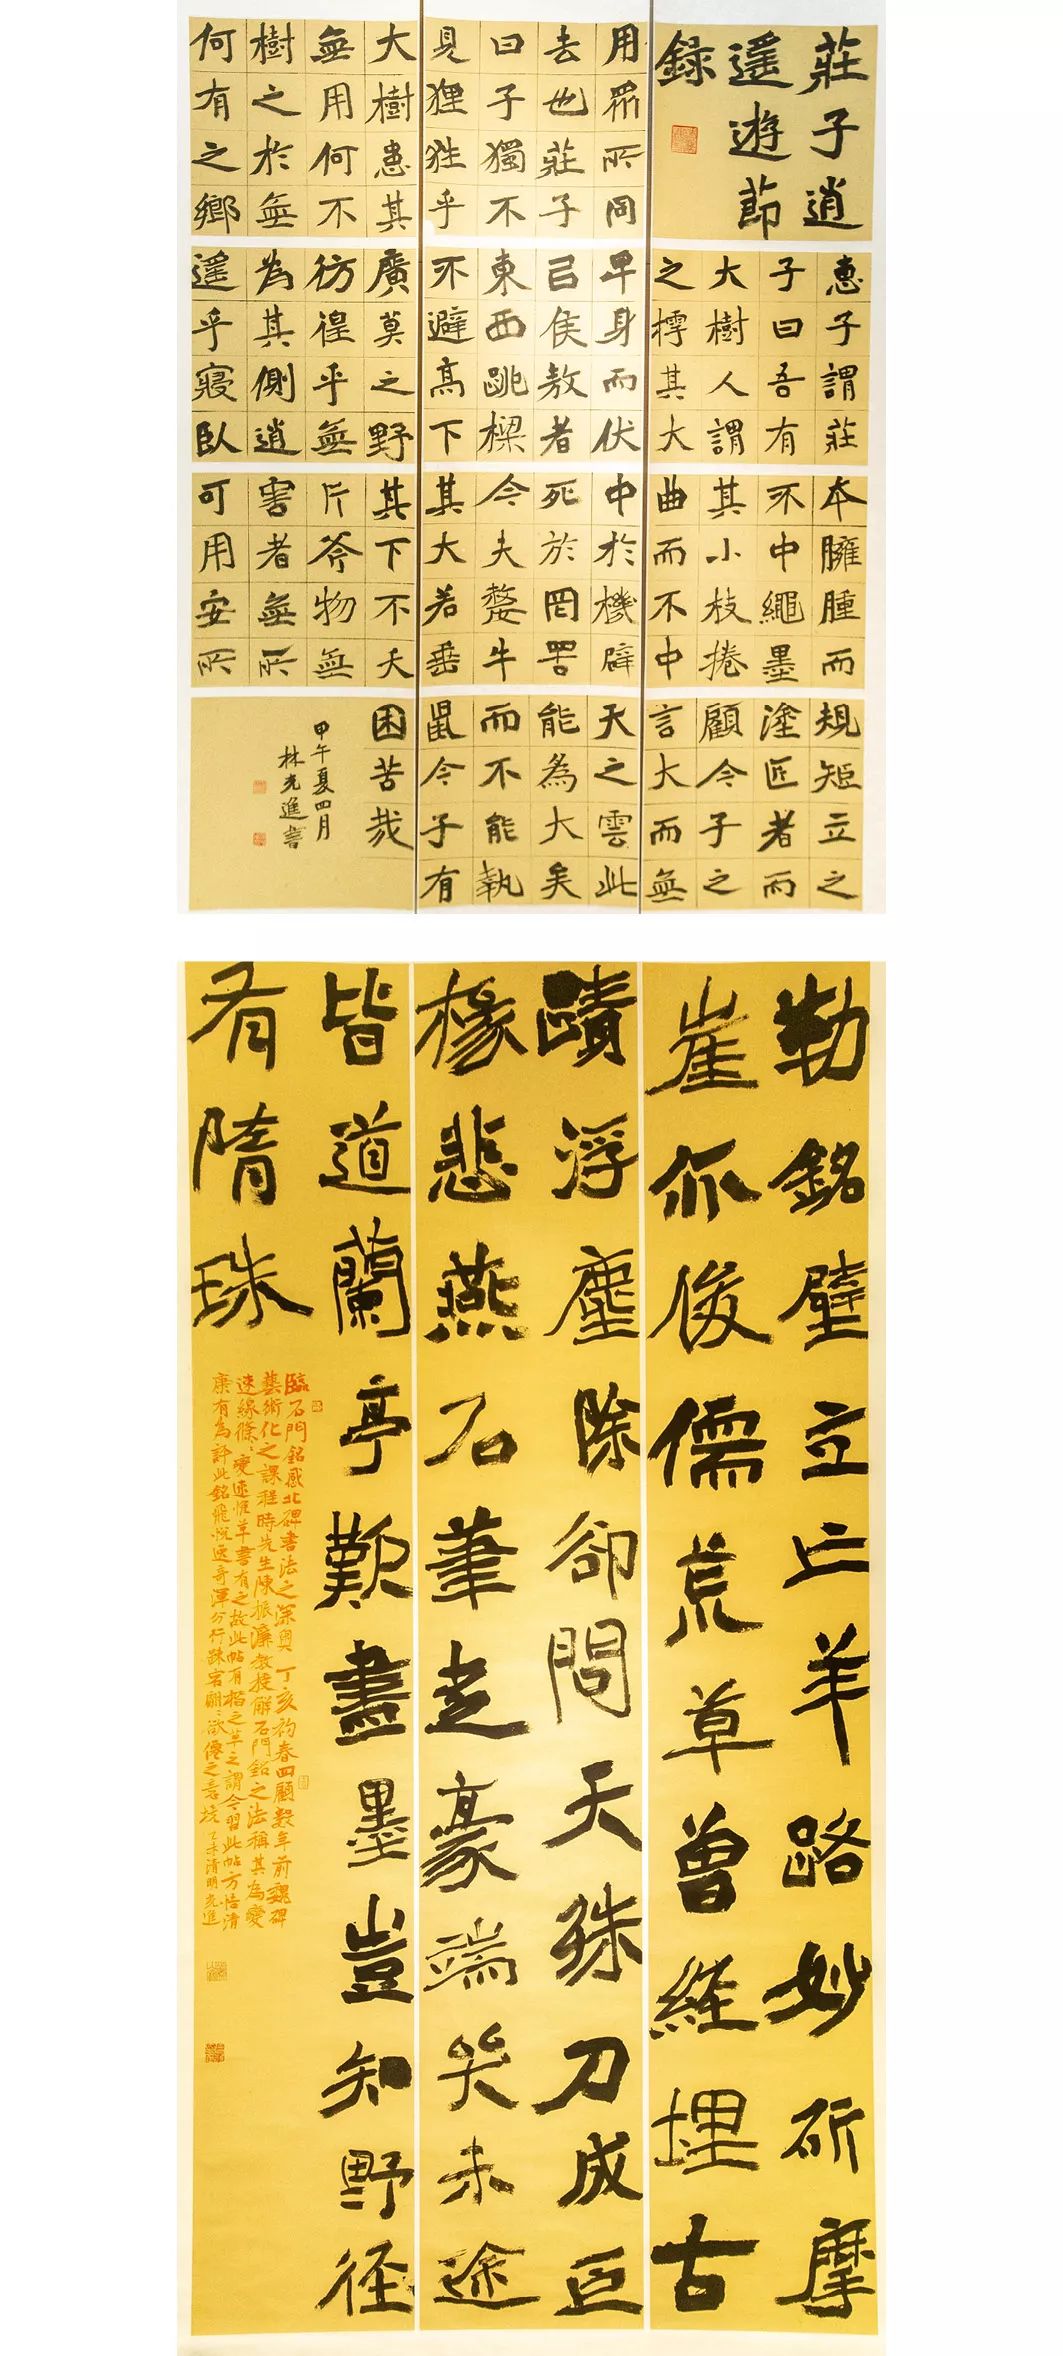 莊子逍
遥遊節
録
惠子謂莊
子曰吾有
大樹人謂
之樗其大
本臃腫而
不中繩墨
其小枝捲
曲而不中
規矩立之
塗匠者而
顧今子之
言大而無
用眾所同
去也莊子
曰子獨不
見狸狌乎
卑身而伏
已侯敖者
東西跳樑
不避高下
中於機辟
死於罔罟
今夫斄牛
其大若垂
天之雲此
能為大矣
而不能執
鼠今子有
大樹患其
無用何不
樹之於無
何有之鄉
廣莫之野
彷徨乎無
為其側逍
遥乎寢臥
其下不夭
斤斧物無
害者無所
可用安所
困苦哉
甲午夏四月
林光進書
勒銘壁立亡羊路妙斫摩
崖亦後儒荒草曾經埋古
蹟浮塵除卻問天殊刀成巨
椽悲燕石筆走豪端笑未途
皆道蘭亭歎盡墨豈知野徑
有隋珠
臨石門銘感北碑書法之深奥丁亥初春四顧數年前魏碑
藝術化之課程時先生陳振濂教授解石門銘之法稱其為變
速緣條之變速惟草書有之故此帖有楷之草之謂今習此帖方悟清
康有為評此銘飛悦逸奇渾分行疎宕翩翩欲僊之意境乙未清明光進